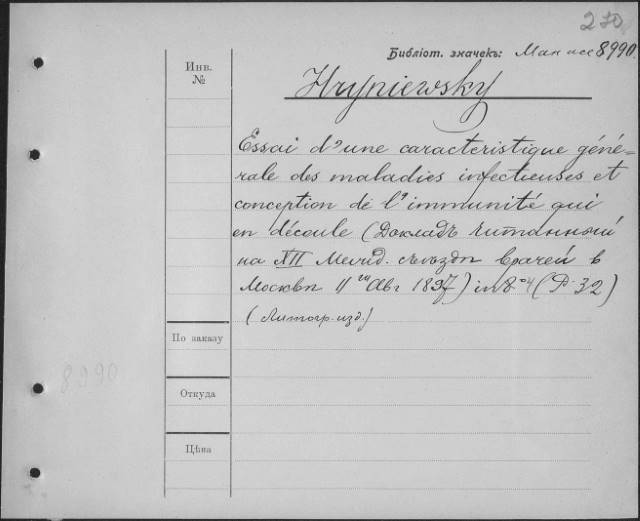 270
Библіот. значекъ: Ман асс 8990
Инв.
№
Hryniewsky
Essai d'une caracteristique géné=
rale des maladies infectieuses et
conception de l'immunité qui
en découle (Докладъ читанный
на XII Межд. съѣздѣ врачей в
Москвѣ 11 го Авг 1897) in 8-o (P. 32)
(Литогр. изд.)
По заказу
8990
Откуда
Цѣна